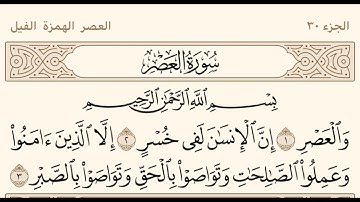 الجزء ٣٠
العصر الهمزة الفيل
سُورَةُ العَصْرِ
بِسْمِ اللَّهِ الرَّحْمَٰنِ الرَّحِيمِ
وَالْعَصْرِ ١ إِنَّ الْإِنسَانَ لَفِي خُسْرٍ ٢ إِلَّا الَّذِينَ ءَامَنُوا
وَعَمِلُوا الصَّالِحَاتِ وَتَوَاصَوْا بِالْحَقِّ وَتَوَاصَوْا بِالصَّبْرِ ٣